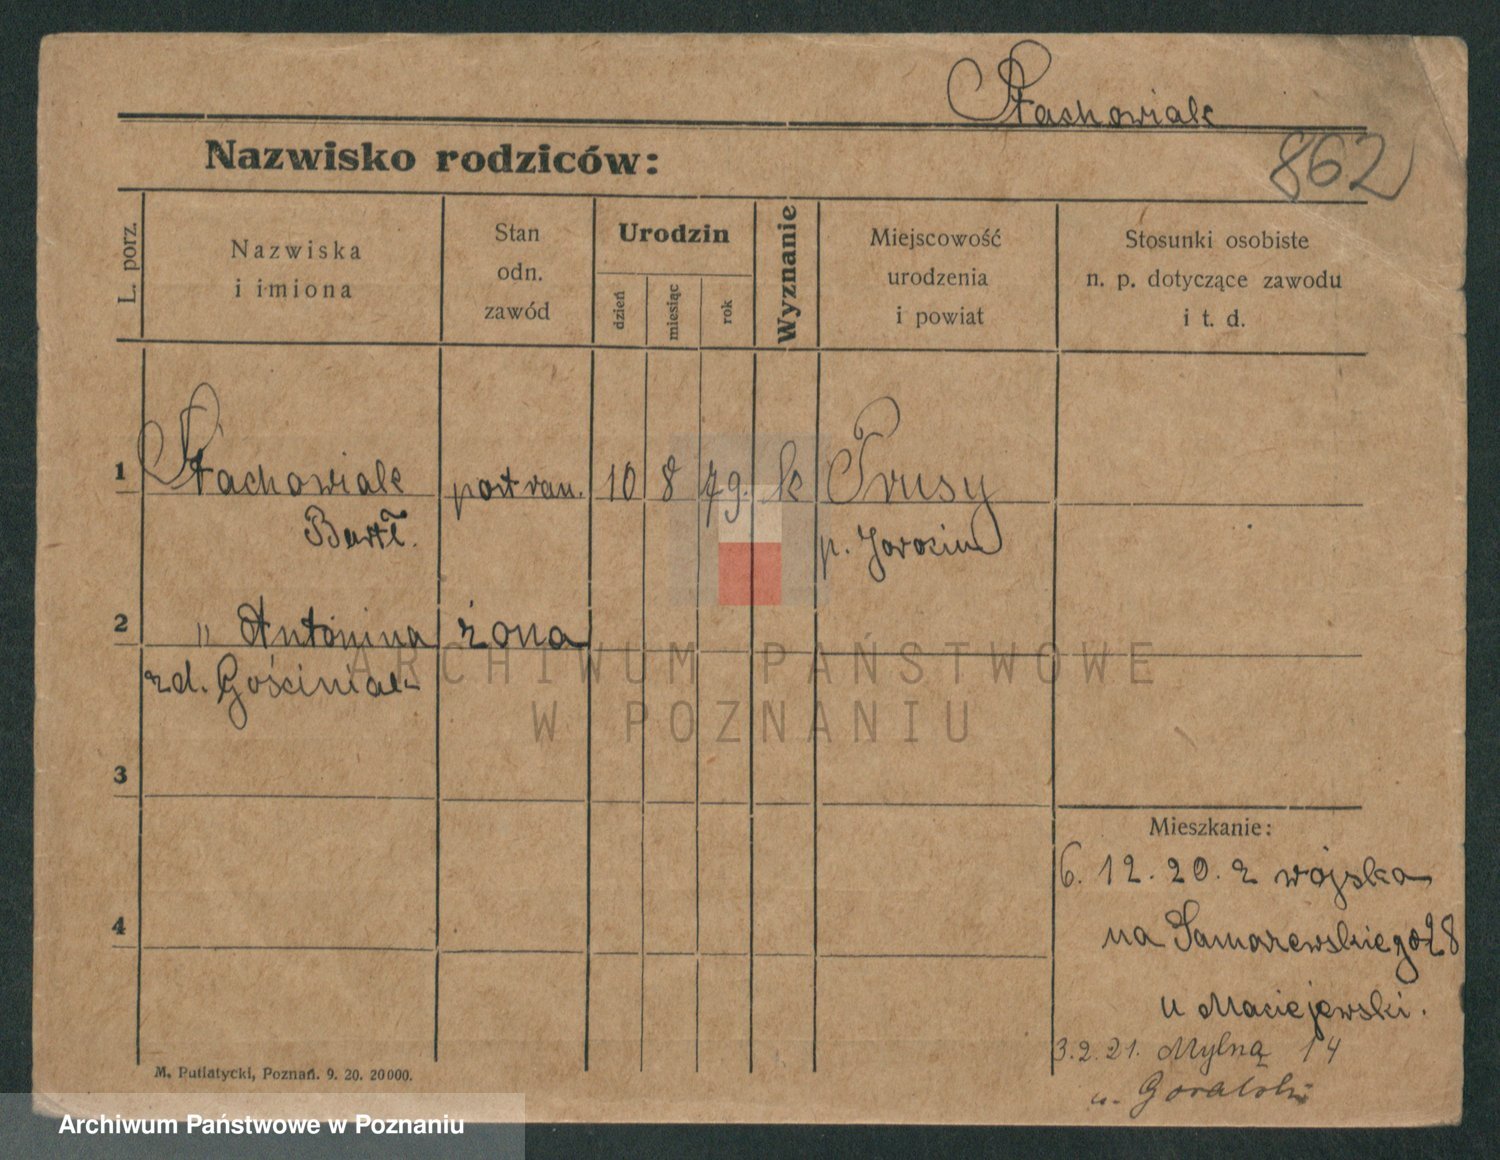 Stachowiak
862
Nazwisko rodziców:
L. porz.
Nazwiska
i imiona
Stan
odn.
zawód
Urodzin
dzień
miesiąc
rok
Wyznanie
Miejscowość
urodzenia
i powiat
Stosunki osobiste
n. p. dotyczące zawodu
i t. d.
1 Stachowiak 10 8 79. k Prusy
Bartł. p. Jarocin
2 " Antonina żona
zd. Gościniak
ARCHIWUM PAŃSTWOWE
W POZNANIU
3
Mieszkanie:
6. 12. 20. z wojska
4
na Samarzewskiego 28
u Maciejewski.
3.2.21. Mylna 14
u. Goralski
M. Putiatycki, Poznań. 9. 20. 20000.
Archiwum Państwowe w Poznaniu